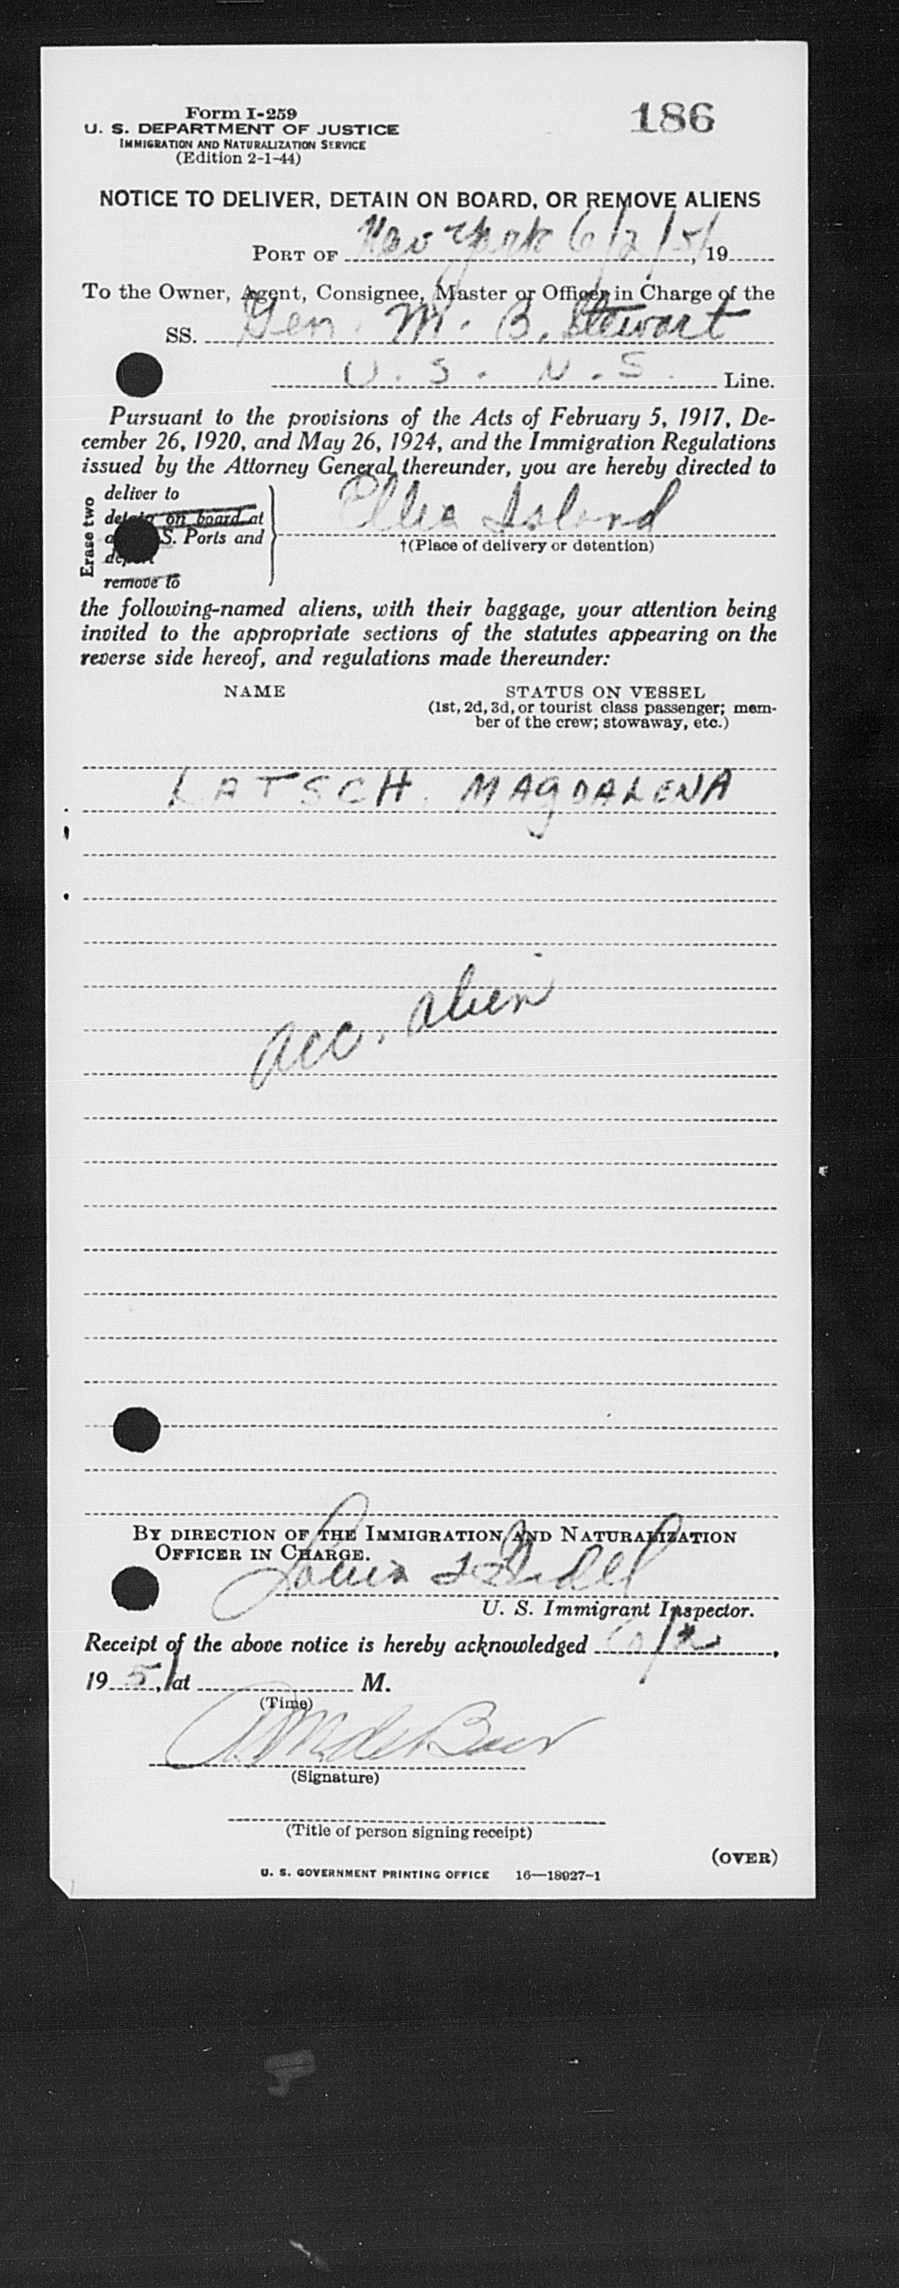 Form I-259
186
U. S. DEPARTMENT OF JUSTICE
IMMIGRATION AND NATURALIZATION SERVICE
(Edition 2-1-44)
NOTICE TO DELIVER, DETAIN ON BOARD, OR REMOVE ALIENS
PORT OF New York 6/2/51, 19
To the Owner, Agent, Consignee, Master or Officer in Charge of the
SS. Gen. M. B. Stewart
U. S. N. S. Line.
Pursuant to the provisions of the Acts of February 5, 1917, De-
cember 26, 1920, and May 26, 1924, and the Immigration Regulations
issued by the Attorney General thereunder, you are hereby directed to
Erase two
deliver to
detain on board at
S. Ports and
deport
remove to
Ellis Island
†(Place of delivery or detention)
the following-named aliens, with their baggage, your attention being
invited to the appropriate sections of the statutes appearing on the
reverse side hereof, and regulations made thereunder:
NAME
STATUS ON VESSEL
(1st, 2d, 3d, or tourist class passenger; mem-
ber of the crew; stowaway, etc.)
LATSCH, MAGDALENA
acc. alien
BY DIRECTION OF THE IMMIGRATION AND NATURALIZATION
OFFICER IN CHARGE.
Louis
U. S. Immigrant Inspector.
Receipt of the above notice is hereby acknowledged 6/2,
19 51, at M.
(Time)
(Signature)
(Title of person signing receipt)
(OVER)
U. S. GOVERNMENT PRINTING OFFICE 16—18927-1